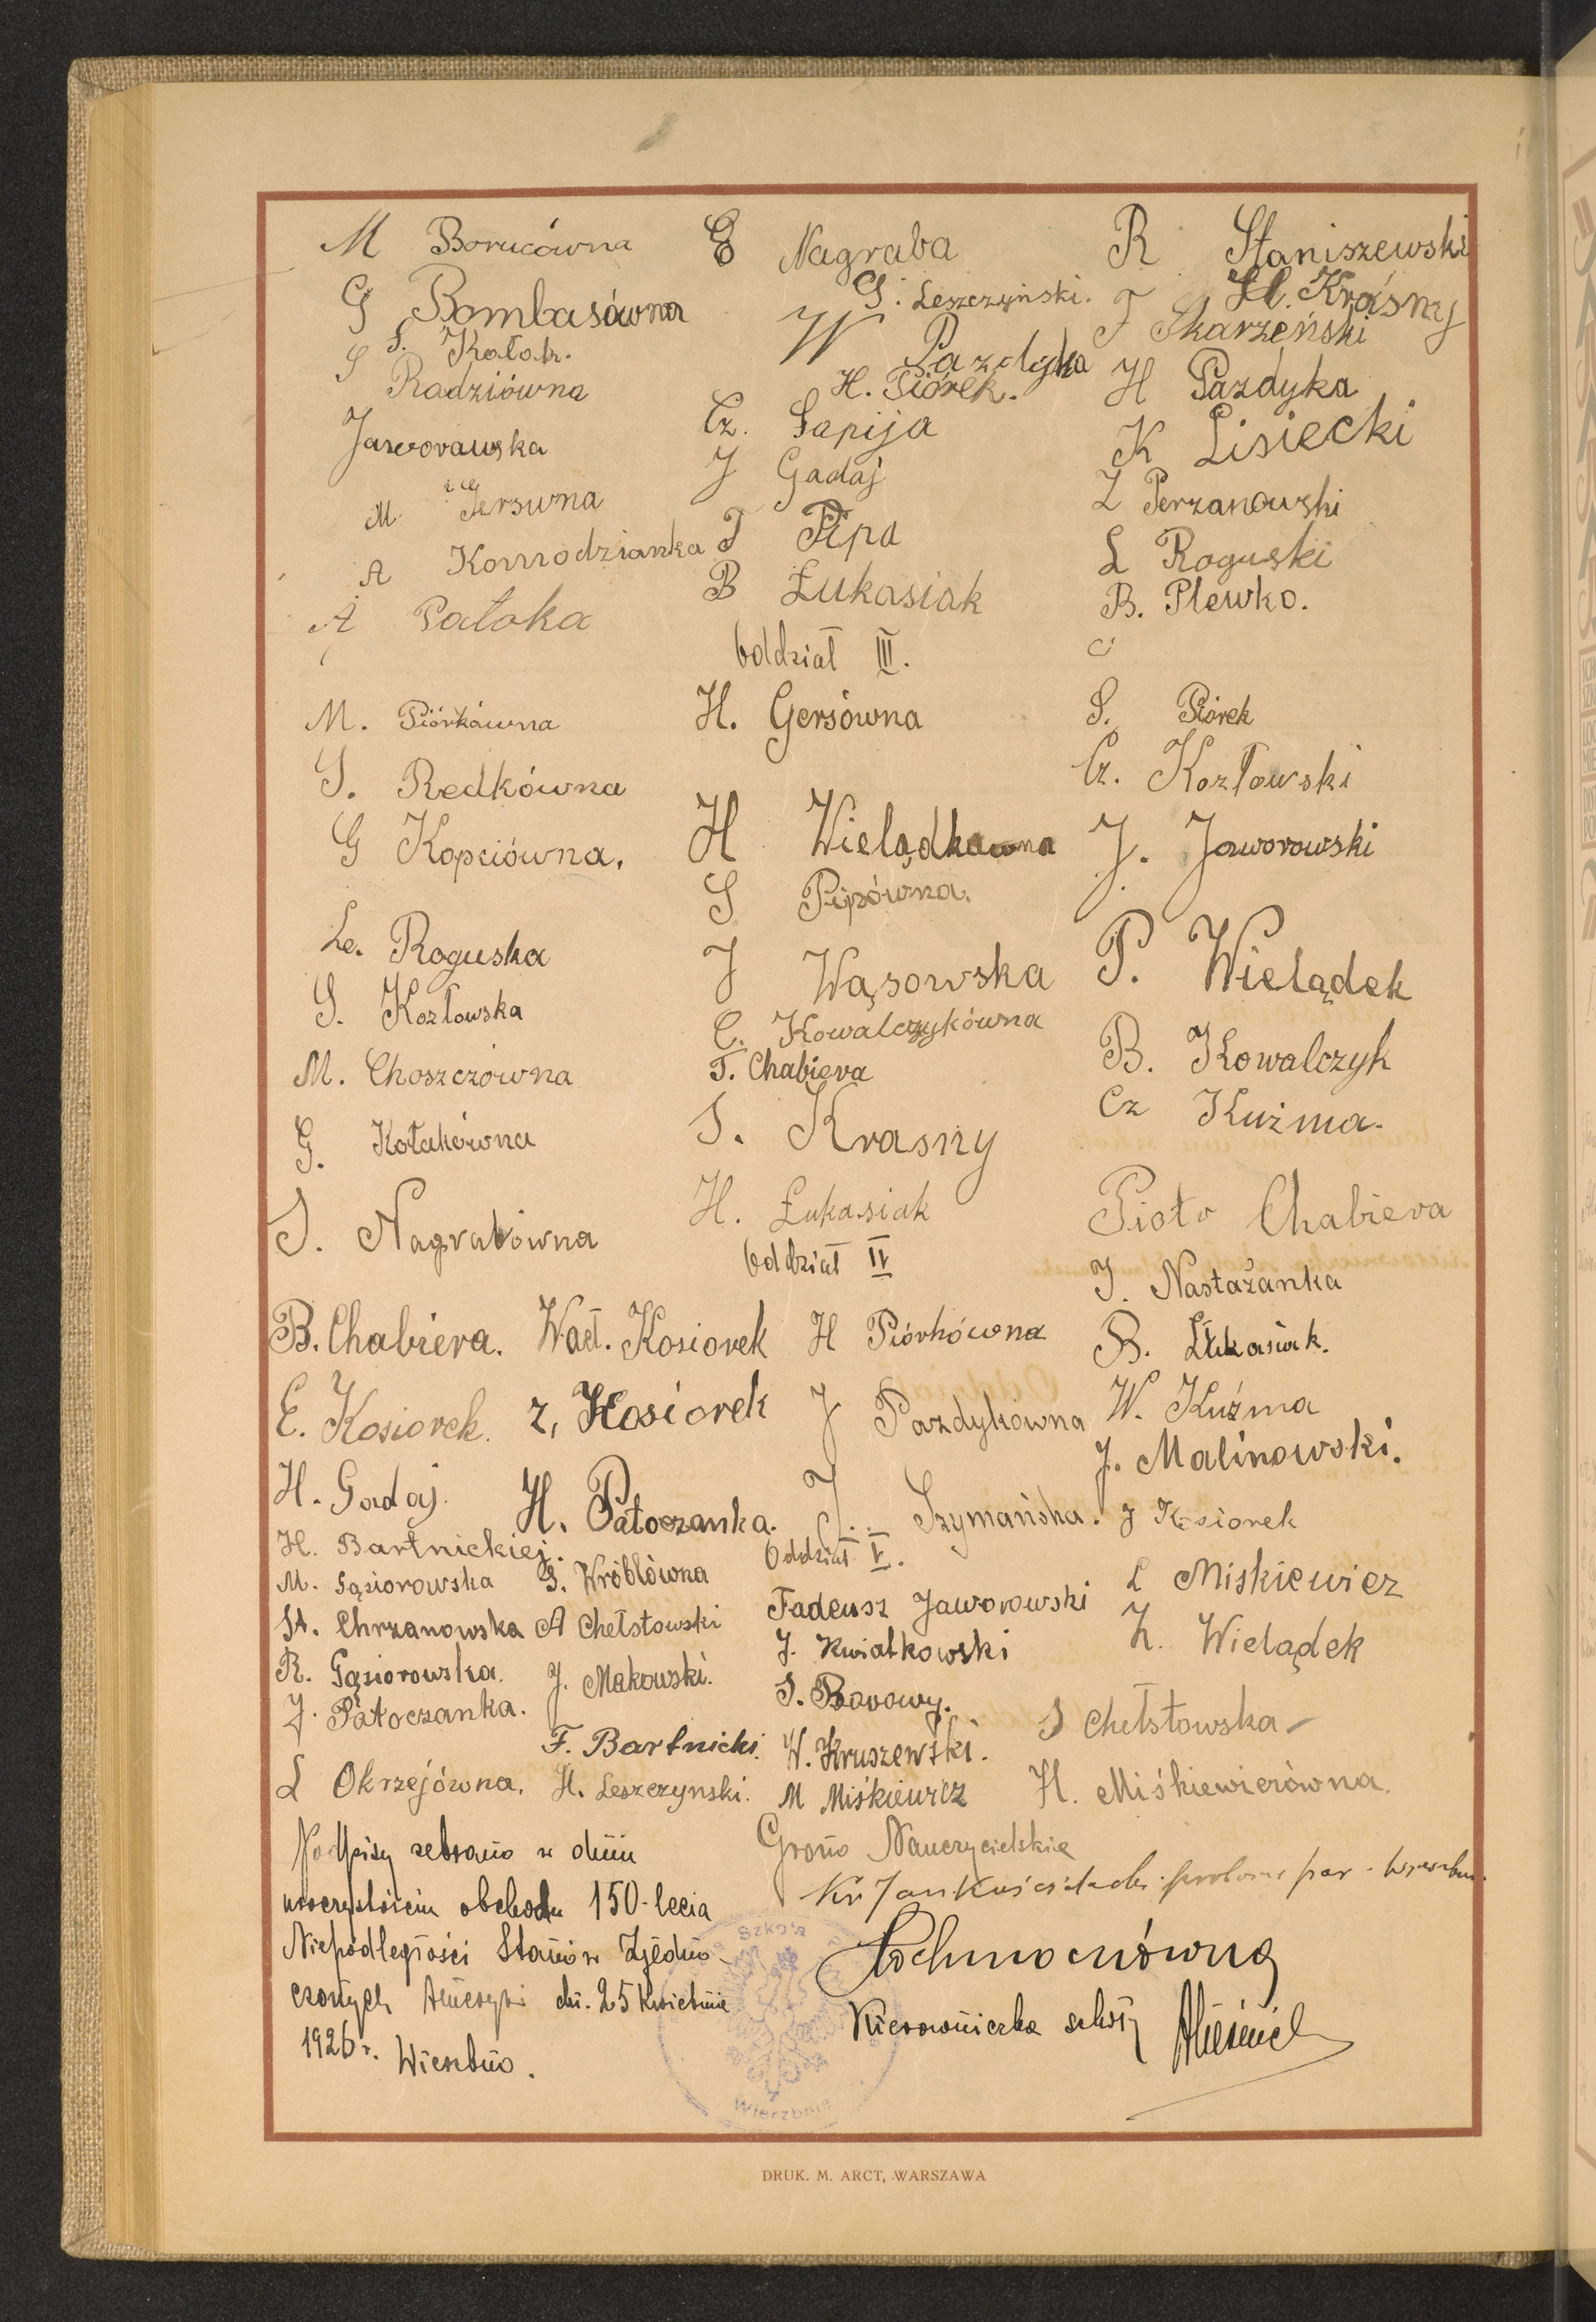 M Borucówna
G Bombasówna
S. Kołak.
S Radziówna
Jaworowska
M. Gersówna
A Komodzianka
A Patoka
E Nagraba
G. Leszczyński.
W Pazdyka
H. Piórek.
Cz. Sapija
J Gadaj
T Pipa
B Łukasiak
R Staniszewski
H. Krasny
F Skarzeński
H Pazdyka
K Lisiecki
Z Perzanowski
L Roguski
B. Plewko.
Oddział III.
M. Piórkówna
S. Redkówna
G Kopciówna.
Le. Roguska
S. Kozłowska
M. Choszczówna
G. Kołakówna
S. Nagrabówna
H. Gersówna
H Wielądkówna
S Pipówna.
J Wąsowska
C. Kowalczykówna
T. Chabiera
S. Krasny
H. Łukasiak
S. Piórek
Cz. Kozłowski
J. Jaworowski
P. Wielądek
B. Kowalczyk
Cz Kuźma.
Piotr Chabiera
Oddział IV
B. Chabiera.
E. Kosiorek.
H. Gadaj.
H. Bartnickiej.
M. Gąsiorowska
St. Chrzanowska
R. Gąsiorowska.
J. Patoczanka.
L Okrzejówna.
Wacł. Kosiorek
Z, Kosiorek
H. Patoczanka.
S. Wróblówna
A Chełstowski
J. Makowski.
F. Bartnicki.
H. Leszczynski.
H Piórkówna
J Pazdykówna
J. Szymańska.
J. Nastażanka
B. Łukasiak.
W. Kuźma
J. Malinowski.
J Kosiorek
Oddział V.
Tadeusz Jaworowski
J. Kwiatkowski
S. Borowy.
W. Kruszewski.
M Miśkiewicz
L Miskiewicz
Z. Wielądek
S Chełstowska
H. Miśkiewiczówna.
Podpisy zebrano w dniu
uroczystości obchodu 150-lecia
Niepodległości Stanów Zjedno-
czonych Ameryki dn. 25 kwietnia
1926 r. Wierzbno.
Grono Nauczycielskie
Ks Jan
Kierowniczka szkoły
Szkoła
Wierzbnie
DRUK. M. ARCT, WARSZAWA